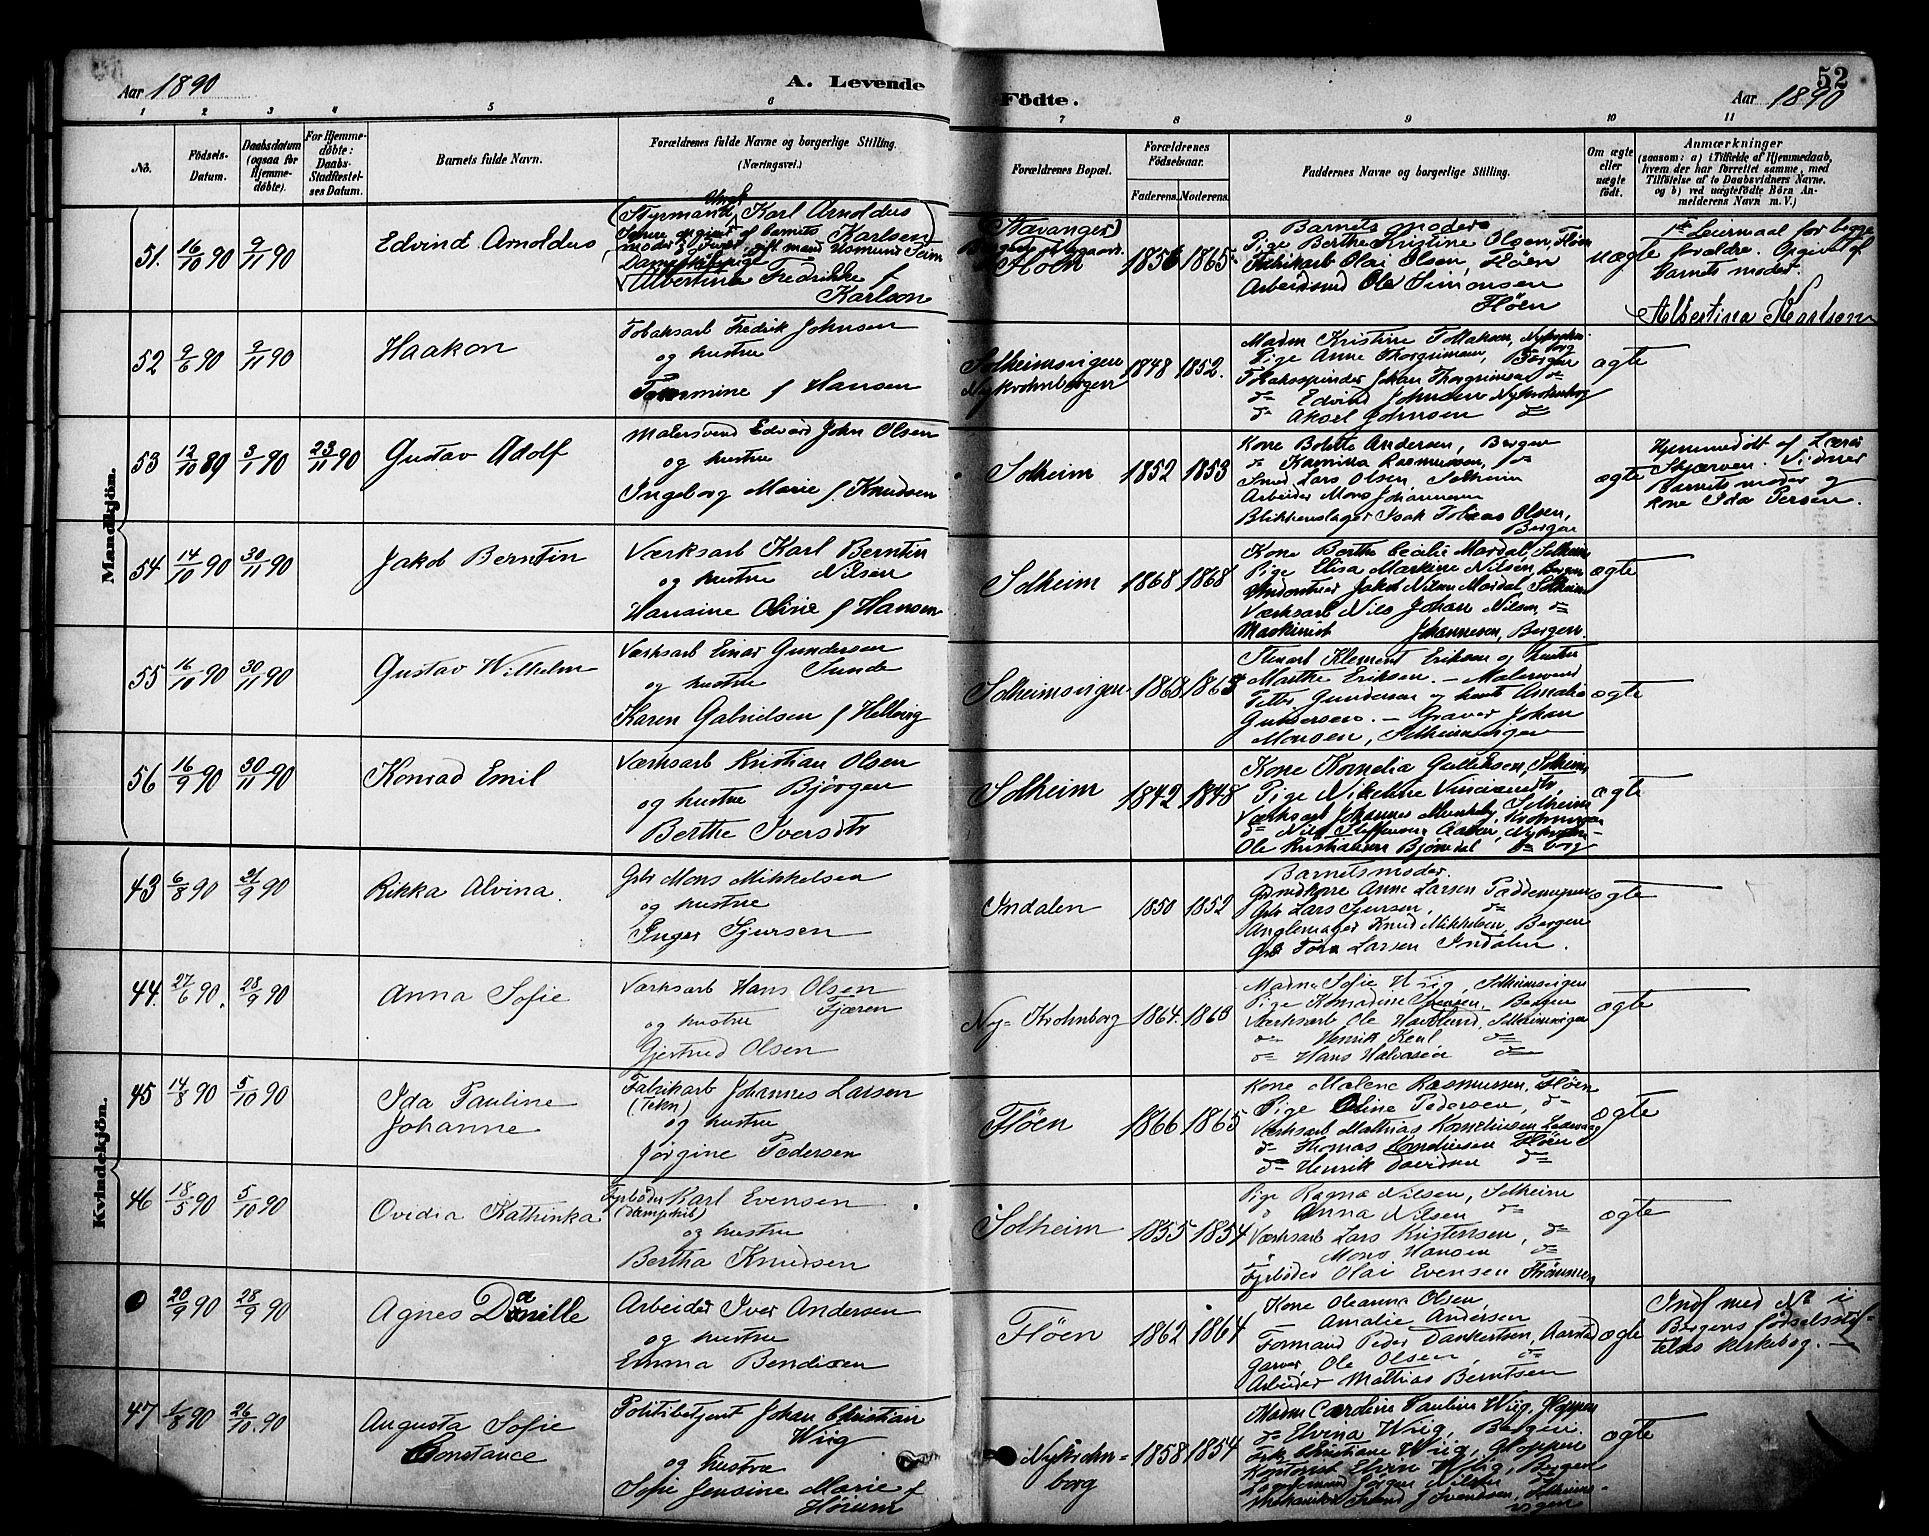 Aar 1890
A. Levende
Födte.
52
Aar 1890
1 2 3 4 5 6 7 8 9 10 11
No.
Födsels-Datum.
Daabsdatum (ogsaa for Hjemmedøbte).
For Hjemmedøbte: Daabs-Stadfæstelses Datum.
Barnets fulde Navn.
Forældrenes fulde Navne og borgerlige Stilling. (Næringsvei.)
Forældrenes Bopæl.
Forældrenes Födselsaar.
Faderens. Moderens.
Faddernes Navne og borgerlige Stilling.
Om ægte eller uægte födt.
Anmærkninger
(saasom: a) i Tilfælde af Hjemmedaab, hvem der har forrettet samme, med Tilföielse af to Daabsvidners Navne, og b) ved uægtefödte Börn Anmelderens Navn m. V.)
Mandkjön.
51. 16/10 90 9/11 90
Edvind Arnoldus
(Styrmand Karl Arnoldus
Karlsen
Albertine Fredrikke f
Karlson
(Stavanger)
Fløen
1856 1865
Barnets moder
Pige Berthe Kristine Olsen, Fløen
Fabrikarb Olai Olsen, Fløen
Arbeidsmd Ole Simonsen
Fløen
uægte
1ste Leiermaal for begge
forældre. Opgivet af
barnets moder
Albertina Karlson
52 9/6 90 9/11 90
Haakon
Tobaksarb Fredrik Johnsen
og hustru
f Hansen
Solheimsvigen
Nykrohnborgen
1848 1852.
Madm Kristine Tollaksen,
Pige Anne Thorgrimsen, Bergen
Tobaksspinder Johan Thorgrimsen do
do Edvind Johnsen Nykrohnborg
do Aksel Johnsen do
ægte
53 12/10 89 3/1 90 23/11 90
Gustav Adolf
Malersvend Edvard John Olsen
og hustru
Ingeborg Marie f Knudsen
Solheim
1852 1853
Kone Bolette Andersen, Bergen
do Kamilla Rasmussen, do
Smed Lars Olsen, Solheim
Arbeider Mons Johannesen
Blikkenslager Isak Tobias Olsen,
Bergen
ægte
Hjemmedøbt af Lærer
Skjerven. Vidner
Barnets moder og
kone Ida Persen.
54 14/10 90 30/11 90
Jakob Berntin
Værksarb Karl Berntin
og hustru Nilsen
Hansine Oline f Hansen
Solheim
1868 1868
Kone Berthe Cecilie Mardal, Solheim
Pige Elisa Markine Nilsen, Bergen
Jakob Nilsen Mardal Solheim
Værksarb Nils Johan Nilsen do
Maskinist Johannesen, Bergen.
ægte
55 16/10 90 30/11 90
Gustav Wilhelm
Værksarb Einar Gundersen
og hustru Sunde
Karen Gabrielsen f Hellvig
Solheimsvigen
1868 1865
Stuart Klement Eriksen og hustru
Marthe Eriksen. — Malersvend
Petter Gundersen og hustr Amalie
Gundersen. — Graver Johan
Monsen, Solheimsvigen
ægte
56 16/9 90 30/11 90
Konrad Emil
Værksarb Kristian Olsen
og hustru Bjørgen
Berthe Iversdtr
Solheim
1842 1848
Kone Kornelia Gulliksen, Solheim
Pige Nikoline
Værksarb Johannes
do Nils Steffensen
Ole Kristiansen Bjørndal, do
ægte
Kvindekjön.
43 6/8 90 21/9 90
Rikka Alvina.
Gbr Mons Mikkelsen
og hustru
Inger Sjursen
Indalen
1850 1852
Barnets moder.
Gmdkone Anne Larsen Paddemyren
Gbr Lars Sjursen, do
Anglemager Knud Mikkelsen, Bergen
Gbr Tore Larsen Indalen.
ægte
44. 27/6 90. 28/9 90
Anna Sofie
Værksarb Hans Olsen
og hustru Fjæren
Gjertrud Olsen
Ny-Krohnborg
1864. 1863
Madm Sofie Wiig, Solheimsvigen
Pige Konradine Svensen, Bergen
Værksarb Ole Havelund, Solheimsvigen
do Henrik Keul do
do Hans Halvorsen do
ægte
45 14/8 90 5/10 90
Ida Pauline
Johanne
Fabrikarb Johannes Larsen
(Tekn)
og hustru
Jørgine Pedersen
Fløen
1866 1865
Kone Malene Rasmussen, Fløen
Pige Oline Pedersen, do
Værksarb Mathias Korneliussen
do Thomas Korneliussen Fløen
do Henrik Davidsen do
ægte
46 18/5 90 5/10 90
Ovidia Kathinka
Fyrbøder Karl Evensen
(Dampskib)
og hustru
Bertha Knudsen
Solheim
1855 1854
Pige Ragna Nilsen, Solheim
" Anna Nilsen do
Værksarb Lars Kristensen, do
" Mons Hansen do
Fyrbøder Olai Evensen
ægte
20/9 90 28/9 90
Agnes Danille
Arbeider Iver Andersen
og hustru
Emma Bendixen
Fløen
1862 1864
Kone Oleanna Olsen,
" Amalie Andersen
Formand Peder Dankertsen, Aarstad
Garver Ole Olsen, do
Arbeider Mathias Berntsen
ægte
Indf med No i
Bergens fødselsstif-
telses kirkebog.
47 1/8 90 26/10 90
Augusta Sofie
Constance
Politibetjent Johan Christian
Wiig
og hustru
Sofie Jensine Marie f
Høium
Nykrohn-
borg
1858 1854
Madm Caroline Pauline Wiig, Gloppen
do Elvina Wiig, Bergen.
Frk Christiane Wiig, Gloppen
Kontorist Elvin Wiig, Bergen
Jørgen Nilsen
J Svendsen, Solheims-
vigen
ægte